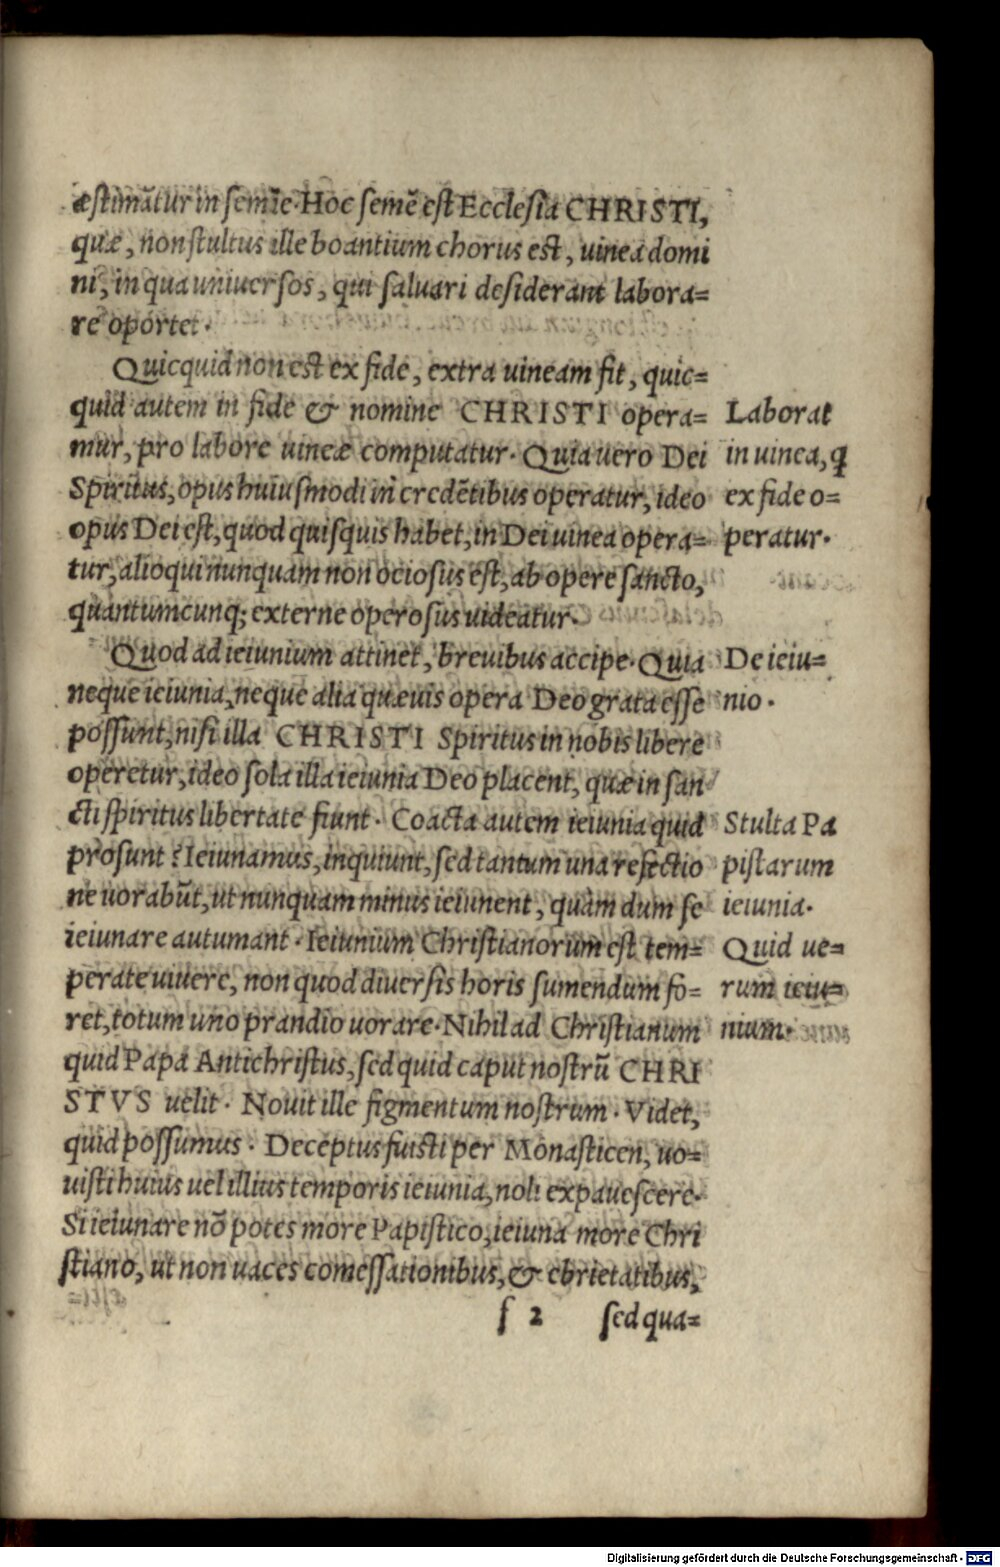 æstimãtur in semĩe. Hoc semẽ est Ecclesia CHRISTI,
quæ, non stultus ille boantium chorus est, uinea domi
ni, in qua uniuersos, qui saluari desiderant labora=
re oportet.
Quicquid non est ex fide, extra uineam fit, quic=
quid autem in fide & nomine CHRISTI opera=
mur, pro labore uineæ computatur. Quia uero Dei
Spiritus, opus huiusmodi in credẽtibus operatur, ideo
opus Dei est, quod quisquis habet, in Dei uinea opera=
tur, alioqui nunquam non ociosus est, ab opere sancto,
quantumcunq; externe operosus uideatur.
Laborat
in uinea, q
ex fide o=
peratur.
Quod ad ieiunium attinet, breuibus accipe. Quia
neque ieiunia, neque alia quæuis opera Deo grata esse
possunt, nisi illa CHRISTI Spiritus in nobis libere
operetur, ideo sola illa ieiunia Deo placent, quæ in san
cti spiritus libertate fiunt. Coacta autem ieiunia quid
prosunt? Ieiunamus, inquiunt, sed tantum una refectio
ne uorabũt, ut nunquam minus ieiunent, quàm dum se
ieiunare autumant. Ieiunium Christianorum est tem=
perate uiuere, non quod diuersis horis sumendum fo=
ret, totum uno prandio uorare. Nihil ad Christianum
quid Papa Antichristus, sed quid caput nostrũ CHRI
STVS uelit. Nouit ille figmentum nostrum. Videt,
quid possumus. Deceptus fuisti per Monasticen, uo=
uisti huius uel illius temporis ieiunia, noli expauescere.
Si ieiunare nõ potes more Papistico, ieiuna more Chri
stiano, ut non uaces comessationibus, & ebrietatibus,
De ieiu=
nio.
Stulta Pa
pistarum
ieiunia.
Quid ue=
rum ieiu=
nium.
f 2 sed qua=
Digitalisierung gefördert durch die Deutsche Forschungsgemeinschaft - DFG